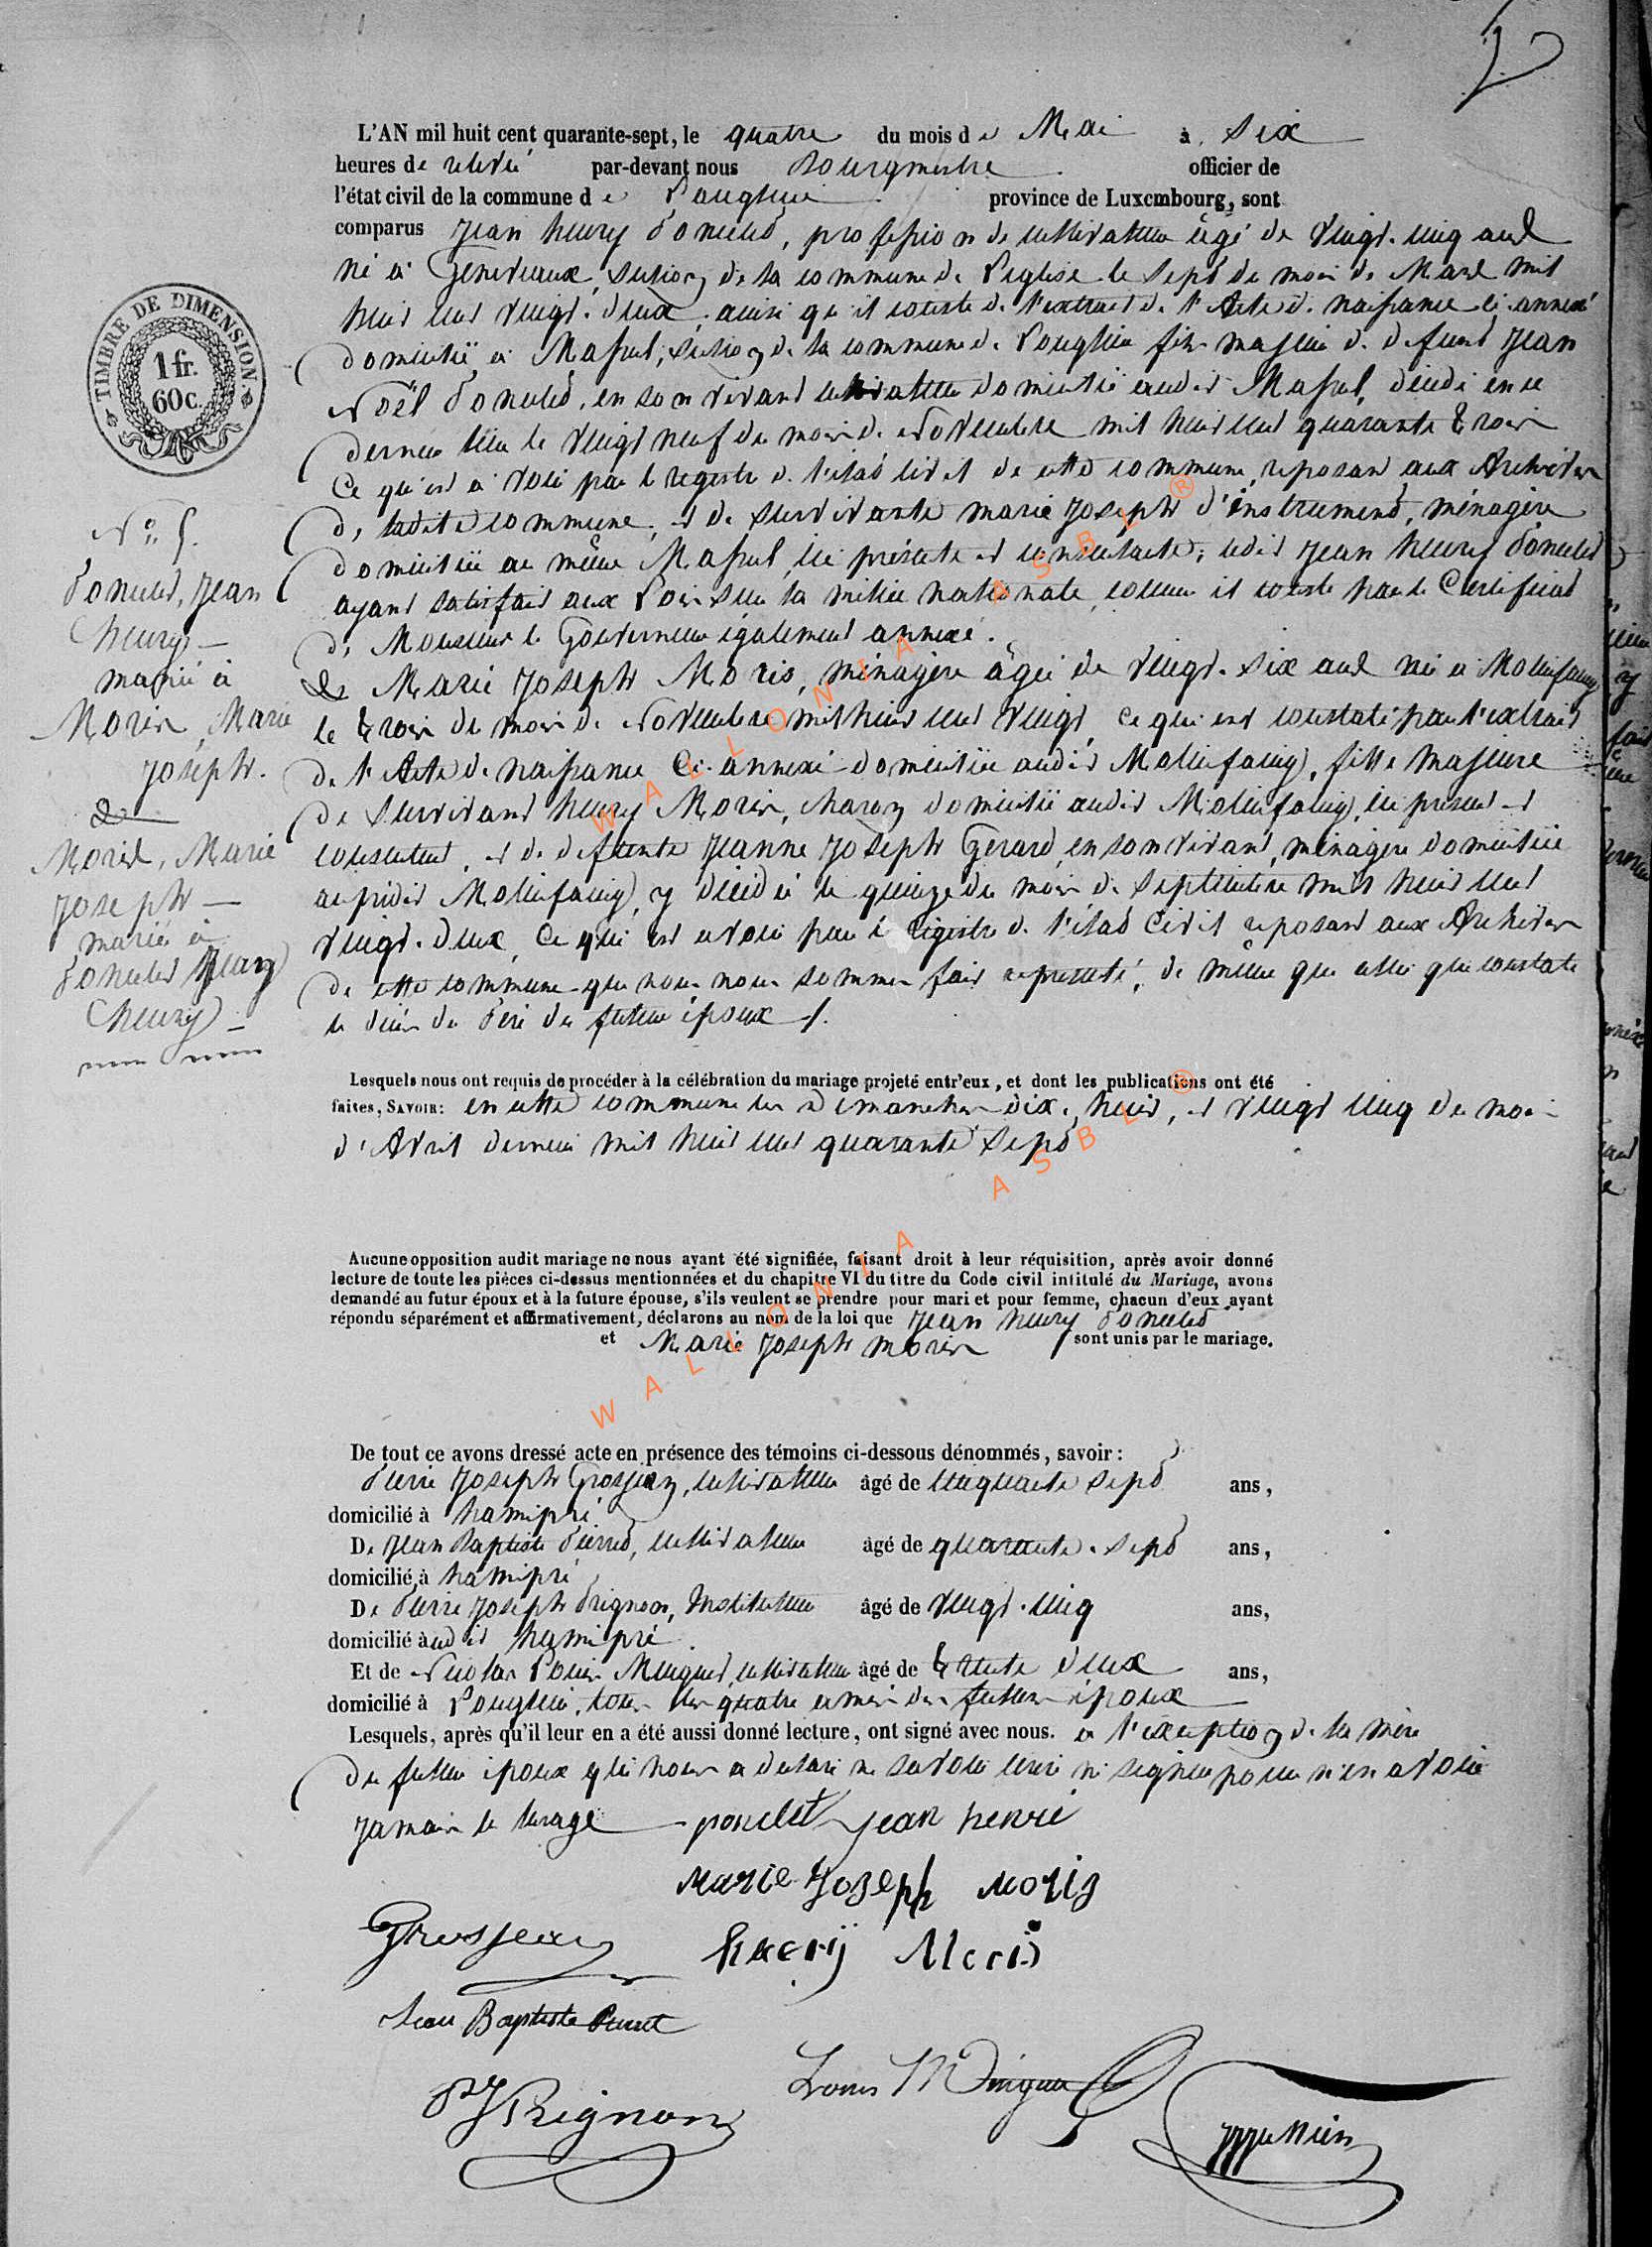 L'AN mil huit cent quarante-sept, le quatre du mois de Mai à six
heures de relevé par-devant nous Bourgmestre officier de
l'état civil de la commune de Longlier province de Luxembourg, sont
comparus Jean henry Poncelet, profession de cultivateur âgé de vingt-cinq ans
né à Genevaux, section de la commune de Léglise le sept du mois de Mars mil
huit cent vingt-deux, ainsi qu'il conste de l'extrait de l'Acte de naissance ci-annexé
domicilié à Massul, section de la commune de Longlier fils majeur de defunt Jean
Noël Poncelet, en son vivant cultivateur domicilié audit Massul, décédé en ce
dernier lieu le vingt neuf du mois de Novembre mil huit cent quarante trois
Ce qu'est à voir par le registre de l'état civil de cette commune, reposant aux Archives
de ladite commune, et de survivante marie Joseph d'instrument, ménagère
domiciliée au même Massul, ici présente et consentante; ledit Jean henry Poncelet
ayant satisfait aux Lois sur la milice nationale, comme il conste par le Certificat
de Monsieur le Gouverneur également annexé.
Et Marie Joseph Moris, ménagère âgée de vingt-six ans née à Molinfaing
le trois du mois de Novembre mil huit cent vingt, ce qui est constaté par l'extrait
de l'Acte de naissance Ci-annexé domiciliée audit Molinfaing, fille majeure
de survivant henry Moris, charon domicilié audit Molinfaing, ici présent et
consentant, et de defunte Jeanne Joseph Gerard, en son vivant, ménagère domiciliée
au prédit Molinfaing, y décédée le quinze du mois de Septembre mil huit cent
vingt-deux, Ce qui est à voir par le régistre de l'état Civil reposant aux Archives
de cette commune que nous nous sommes fait représenté, de même que celui qui constate
le décès du Père du futur époux ./.
TIMBRE DE DIMENSION.
1 fr.
60 c.
N° 5.
Poncelet, Jean
henry
marié à
Moris, Marie
Joseph.
&
Moris, Marie
Joseph
mariée à
Poncelet Jean
henry
Lesquels nous ont requis de procéder à la célébration du mariage projeté entr'eux, et dont les publications ont été
faites, SAVOIR: en cette commune les Dimanches dix-huit, et vingt cinq du mois
d'Avril dernier mil huit cent quarante sept
Aucune opposition audit mariage ne nous ayant été signifiée, faisant droit à leur réquisition, après avoir donné
lecture de toute les pièces ci-dessus mentionnées et du chapitre VI du titre du Code civil intitulé du Mariage, avons
demandé au futur époux et à la future épouse, s'ils veulent se prendre pour mari et pour femme, chacun d'eux ayant
répondu séparément et affirmativement, déclarons au nom de la loi que Jean henry Poncelet
et Marie Joseph Moris sont unis par le mariage.
De tout ce avons dressé acte en présence des témoins ci-dessous dénommés, savoir:
Pierre Joseph Grosjean, cultivateur âgé de cinquante sept ans,
domicilié à hamipré
De Jean Baptiste Pierret, cultivateur âgé de quarante-sept ans,
domicilié à hamipré
De Pierre Joseph Prignon, Instituteur âgé de vingt-cinq ans,
domicilié audit hamipré
Et de Nicolas Louis Minguet, cultivateur âgé de trente deux ans,
domicilié à Longlier, tous les quatre amis des futurs époux
Lesquels, après qu'il leur en a été aussi donné lecture, ont signé avec nous. à l'exception de la mère
du futur époux qui nous a declaré ne savoir écrire ni signer pour n'en avoir
Jamais le usage
poncelet jean henri
Marie Joseph Moris
Grosjean
henry Moris
Jean Baptiste Pierret
Louis Minguet
PJ Prignon
WALLONIA ASBL ®
WALLONIA ASBL ®